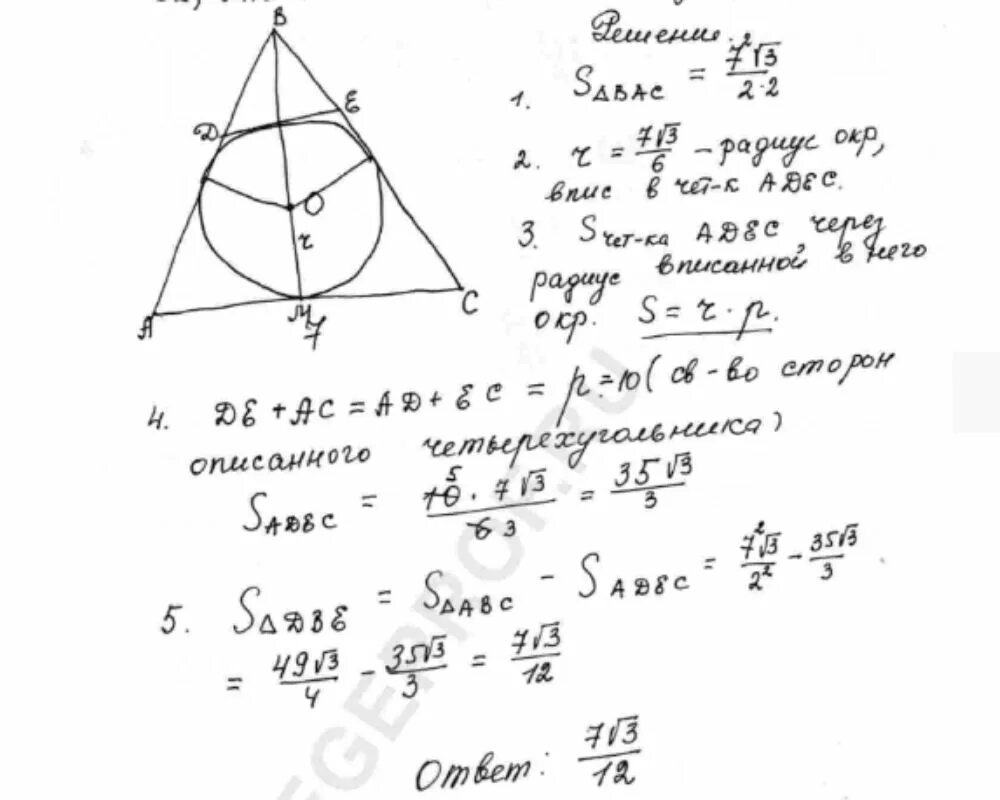 B
E
D
O
r
A
M
C
7
Решение.
1. S△BAC = 7²√3 / 2·2
2. r = 7√3 / 6 – радиус окр,
впис в чет-к ADEC.
3. S чет-ка ADEC через
радиус вписанной в него
окр. S = r · p.
4. DE + AC = AD + EC = p = 10 ( св-во сторон
описанного четырехугольника)
S ADEC = 10 5 · 7√3 / 6 3 = 35√3 / 3
5. S△DBE = S△ABC – S ADEC = 7²√3 / 2² – 35√3 / 3
= 49√3 / 4 – 35√3 / 3 = 7√3 / 12
Ответ: 7√3 / 12
EGERPROF.RU